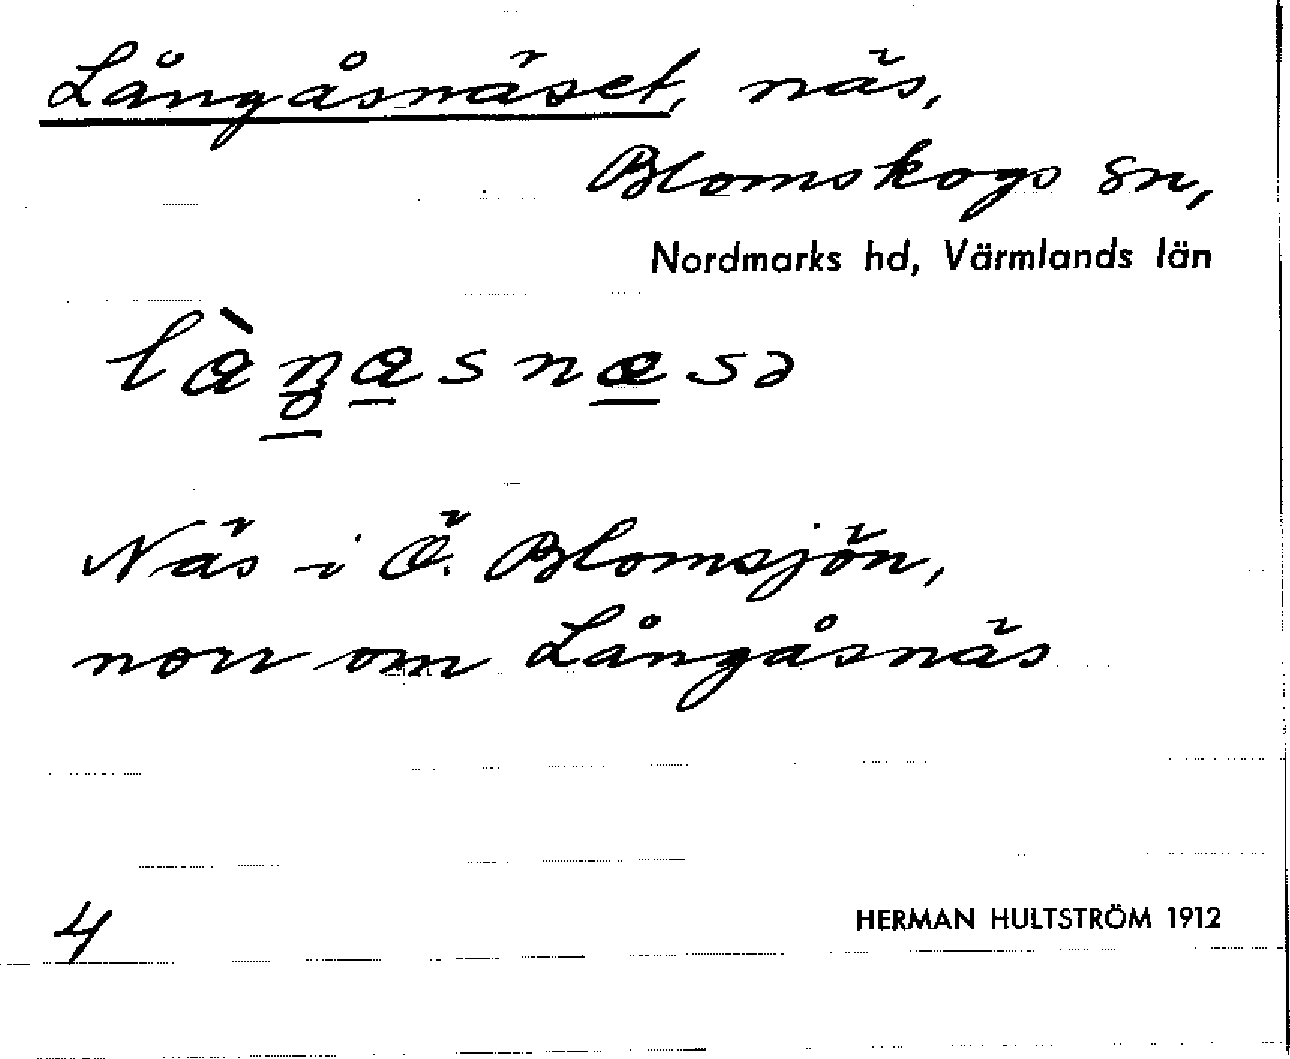 Långåsnäset, näs,
Blomskogs sn,
Nordmarks hd, Värmlands län
Näs i Ö. Blomsjön,
norr om Långåsnäs
4
HERMAN HULTSTRÖM 1912